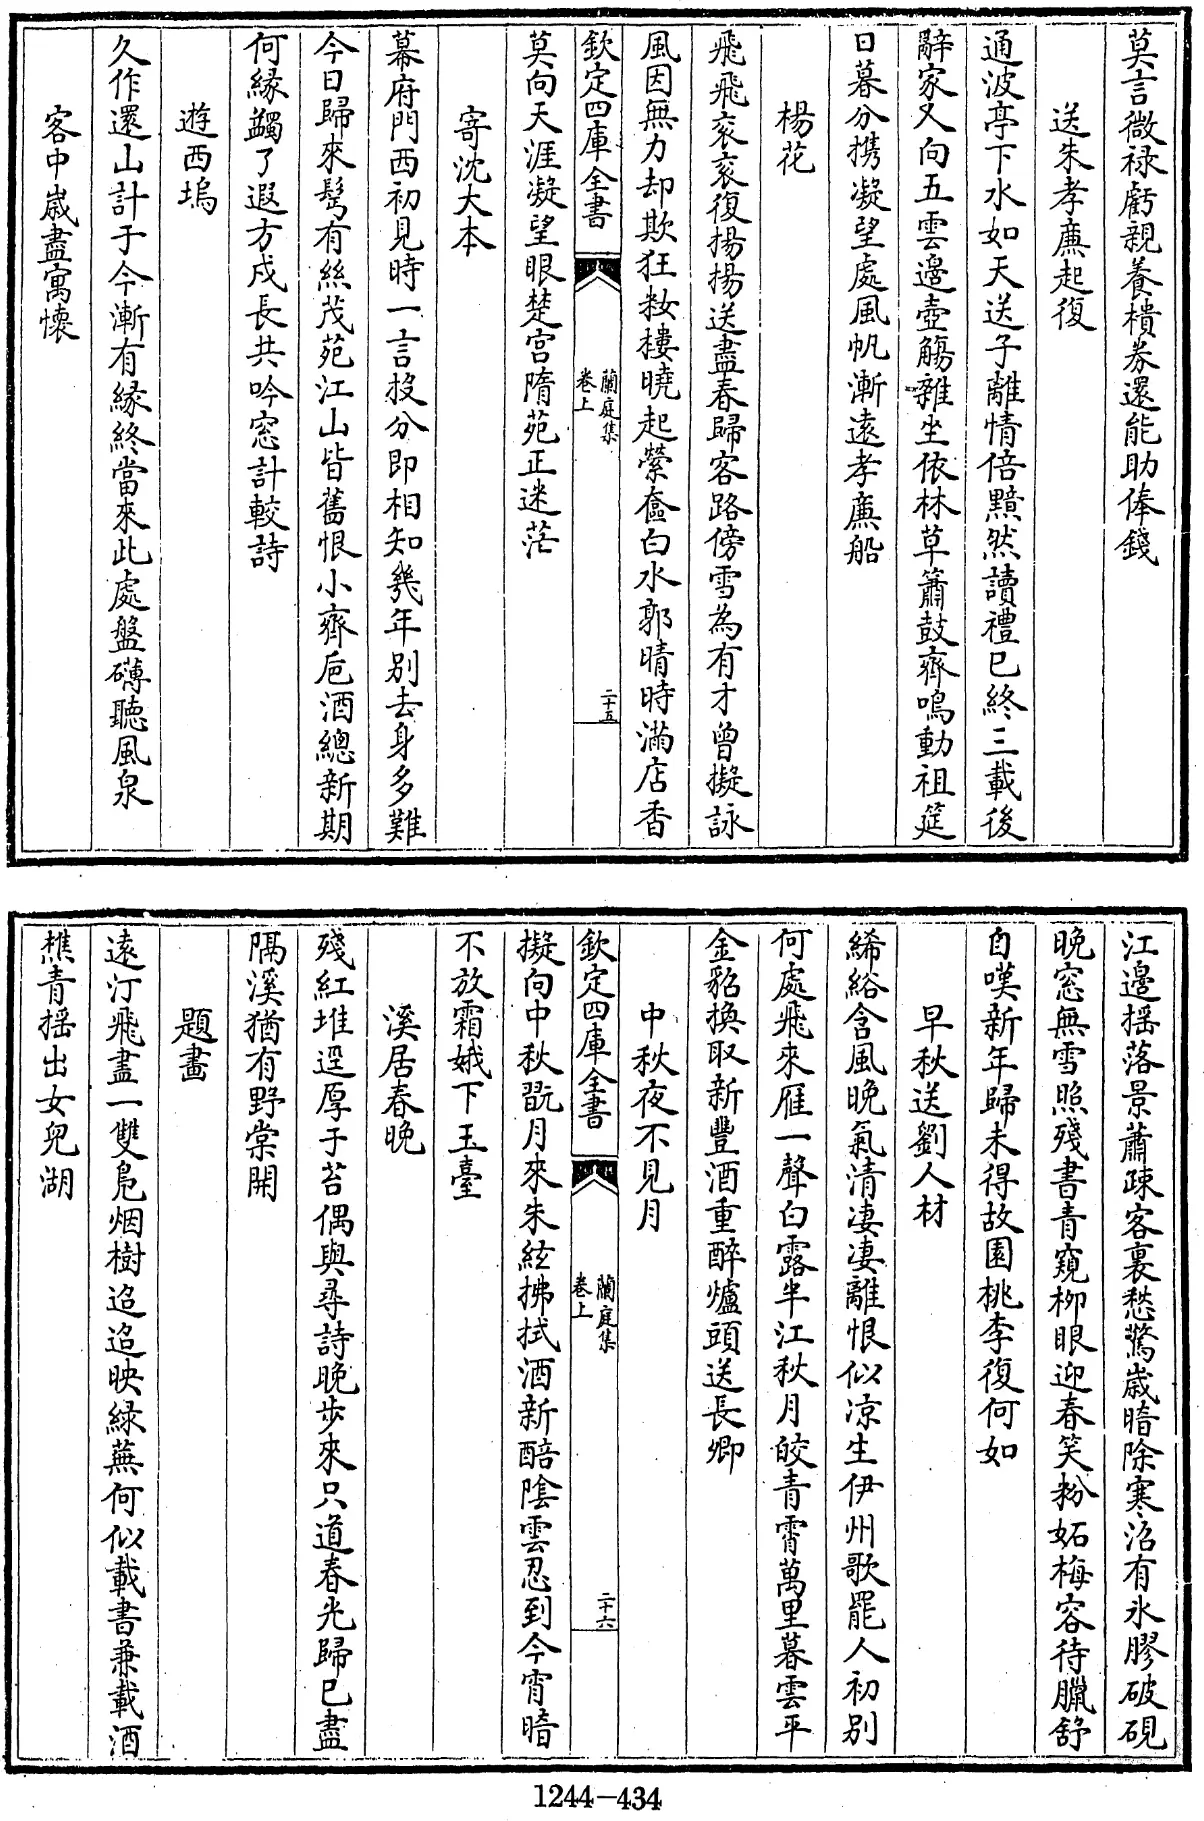 莫言微禄虧親養檟券還能助俸錢
送朱孝廉起復
通波亭下水如天送子離情倍黯然讀禮已終三載後
辭家又向五雲邊壺觴雜坐依林草簫鼓齊鳴動祖筵
日暮分携凝望處風帆漸遠孝廉船
楊花
飛飛衮衮復揚揚送盡春歸客路傍雪為有才曾擬詠
風因無力却欺狂妝樓曉起縈奩白水郭晴時滿店香
欽定四庫全書
蘭庭集
卷上
二十五
莫向天涯凝望眼楚宫隋苑正迷茫
寄沈大本
幕府門西初見時一言投分即相知幾年別去身多難
今日歸來髩有絲茂苑江山皆舊恨小齊巵酒總新期
何縁蠲了遐方戍長共吟窓計較詩
遊西塢
久作還山計于今漸有縁終當來此處盤礴聽風泉
客中嵗盡寓懷
江邊揺落景蕭疎客裏愁驚嵗暗除寒沼有氷膠破硯
晩窓無雪照殘書青窺栁眼迎春笑粉妬梅容待臘舒
自嘆新年歸未得故園桃李復何如
早秋送劉人材
絺綌含風晩氣清凄凄離恨似凉生伊州歌罷人初別
何處飛來雁一聲白露半江秋月皎青霄萬里暮雲平
金貂換取新豐酒重醉爐頭送長卿
中秋夜不見月
欽定四庫全書
蘭庭集
卷上
二十六
擬向中秋翫月來朱絃拂拭酒新醅陰雲忍到今宵暗
不放霜娥下玉臺
溪居春晩
殘紅堆逕厚于苔偶與尋詩晩步來只道春光歸已盡
隔溪猶有野棠開
題畫
遠汀飛盡一雙鳬烟樹迢迢映緑蕪何似載書兼載酒
樵青揺出女兒湖
1244-434